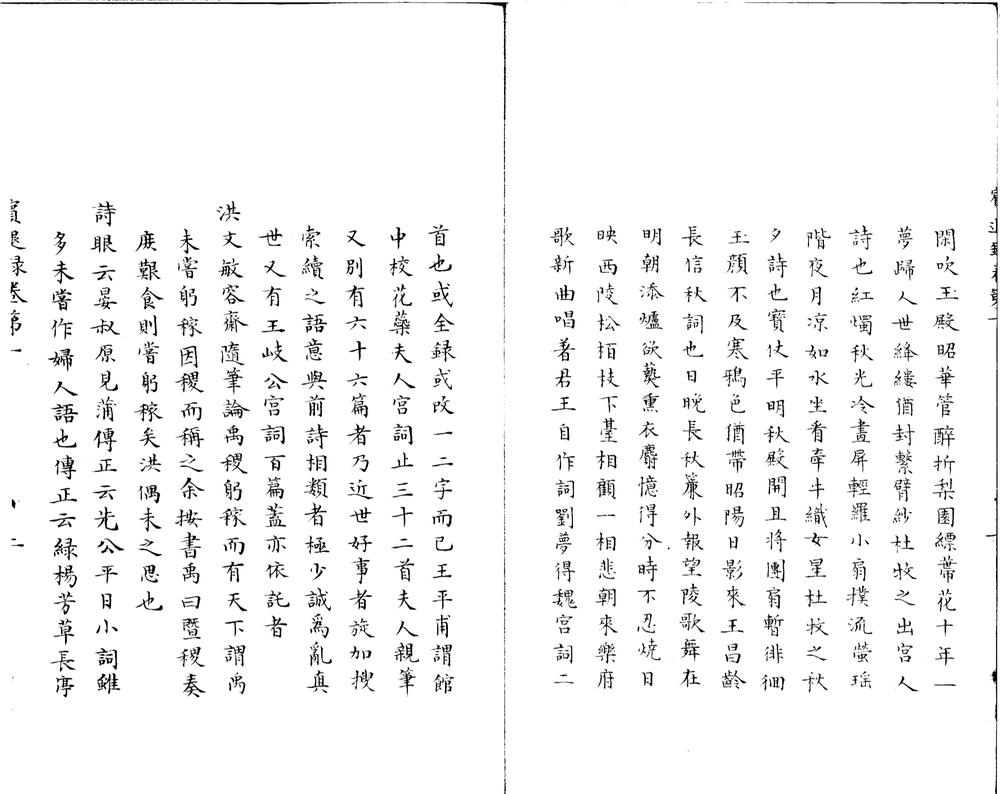 賓退錄卷第一
閑吹玉殿昭華管醉折梨園縹蔕花十年一
夢歸人世絳縷猶封繫臂紗杜牧之出宮人
詩也紅燭秋光冷畫屏輕羅小扇撲流螢瑤
階夜月凉如水坐看牽牛織女星杜牧之秋
夕詩也寳仗平明秋殿開且將團扇暫徘徊
玉顔不及寒鴉色猶帶昭陽日影來王昌齡
長信秋詞也日晚長秋簾外報望陵歌舞在
明朝添爐欲爇熏衣麝憶得分時不忍燒日
映西陵松栢枝下臺相顧一相悲朝來樂府
歌新曲唱著君王自作詞劉夢得魏宮詞二
首也或全録或改一二字而已王平甫謂館
中校花藥夫人宮詞止三十二首夫人親筆
又别有六十六篇者乃近世好事者旋加搜
索續之語意與前詩相類者極少誠爲亂真
世又有王岐公宮詞百篇蓋亦依託者
洪文敏容齋隨筆論禹稷躬稼而有天下謂禹
未嘗躬稼因稷而稱之余按書禹曰曁稷奏
庶艱食則嘗躬稼矣洪偶未之思也
詩眼云晏叔原見蒲傳正云先公平日小詞雖
多未嘗作婦人語也傳正云緑楊芳草長亭
賓退録卷第一
二